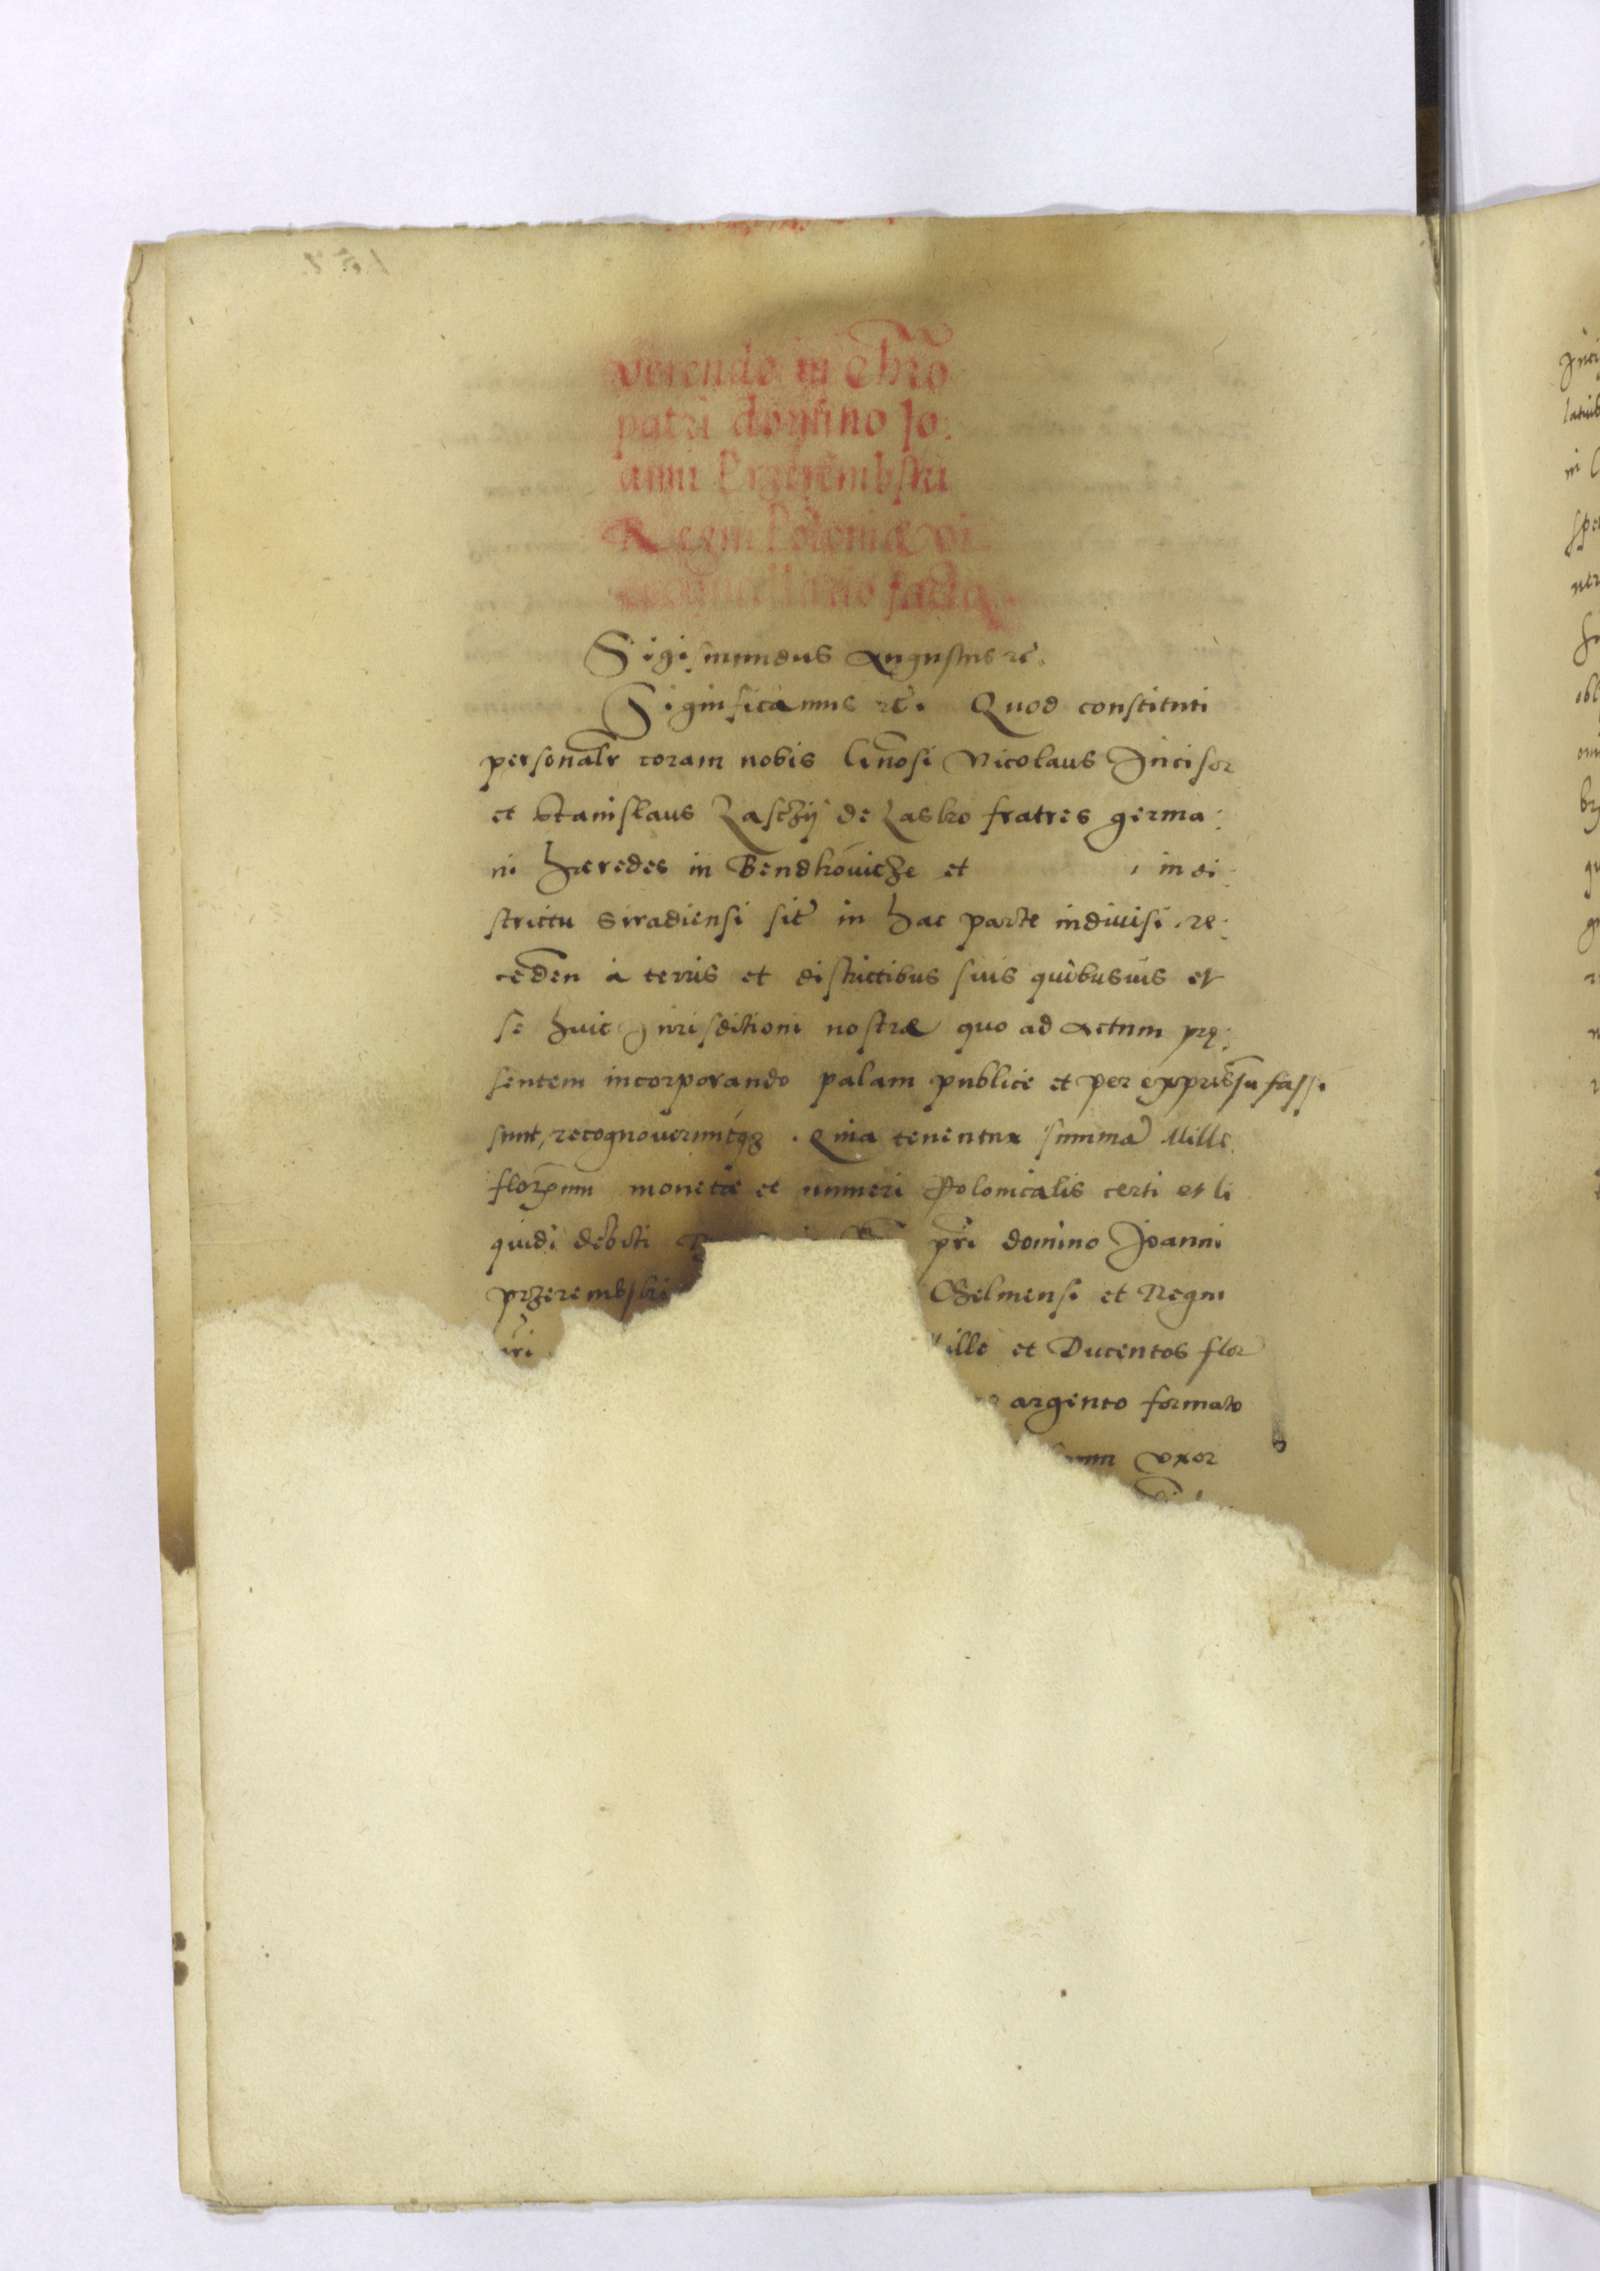 verendo in Chr̃o
patri domino Jo:
anni Przerembski
Regni Poloniæ vi
cecancellario facta
Sigismundus Augustus ꝛc̃.
Significamus ꝛc̃. Quod constituti
personalr̃ coram nobis Gñosi Nicolaus Incisor
et Stanislaus Laschij de Lasko fratres germa:
ni hæredes in Bendkouicze et , in di:
strictu Siradiensi sit̃ in hac parte indiuisi . re:
ceden̄ à terris et districtibus suis quibusuis et
se huic Jurisditioni nostræ quo ad Actum prę:
sentem incorporando palam publice et per expressũ fassi
sunt, recognoveruntq̃ꝫ . Quia tenentur summã Mille
florenum monetæ et numeri Polonicalis certi et li
quidi debiti pr̃i domino Joanni
przerembski Chelmensi et Regni
ille et Ducentos flor
argento formato
uxor